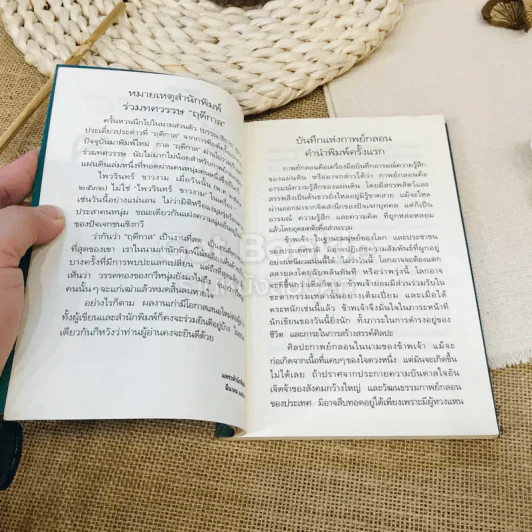 หมายเหตุสำนักพิมพ์
ร่วมทศวรรษ "ฤดีกาล"
ครั้นหวนนึกไปในนามส่วนตัว
ประเดี๋ยวประด๋าวที่ "ฤดีกาล" จากการ
ปัจจุบันมาพิมพ์ใหม่ กาล
ร่วมทศวรรษ นับไม่มากไม่น้อยสำหรับ
แผ่นดินเล่มหนึ่งที่ทอดผ่านคนหนุ่มคนหนึ่ง
ไพวรินทร์ ขาวงาม เมื่อวันนั้น (พ.ศ.
๒๕๓๒) ไม่ใช่ "ไพวรินทร์ ขาวงาม"
เช่นวันนี้อย่างแน่นอน ไม่ว่ามิติหรือ
ประสาคนหนุ่ม ขณะเดียวกันแฝงความ
ของปัจเจกชนเชิงกวี
ว่ากันว่า "ฤดีกาล" เป็นงานที่
ที่สุดของเขา เราในนามสำนักพิมพ์
บางครั้งที่มีการพบปะแลกเปลี่ยน
เห็นว่า วรรคทองของกวีหนุ่มยังมา
คนนั้นๆ จะแก่เฒ่าแล้วหมดสิ้นลมหายใจ
อย่างไรก็ตาม ผลงานเก่ามีโอกาสเสนอใหม่
ทั้งผู้เขียนและสำนักพิมพ์ก็คงจะร่วมยินดีอยู่บ้าง
เดียวกันก็หวังว่าท่านผู้อ่านคงจะยินดีด้วย
บันทึกแห่งกาพย์กลอน
คำนำพิมพ์ครั้งแรก
กาพย์กลอนคือเครื่องมือบันทึกอารมณ์ความรู้สึก
ของแผ่นดิน หรืออาจกล่าวได้ว่า กาพย์กลอนคือ
อารมณ์ความรู้สึกของแผ่นดิน โดยมีสรรพสัตว์และ
สรรพสิ่งเป็นต้นธารถั่งไหลอยู่มิรู้ขาดสาย แม้จะไหล
ผ่านออกมาจากจิตสำนึกของปัจเจกบุคคล แต่ก็เป็น
อารมณ์ ความรู้สึก และความคิด ที่ถูกหล่อหลอม
แล้วโดยอุดมคติเพื่อส่วนรวม
ข้าพเจ้า ในฐานะมนุษย์ของโลก และประชาชน
ของประเทศชาติ มิอาจปฏิเสธความสัมพันธ์ที่ผูกอยู่
อย่างเหนียวแน่นนี้ได้ ไม่ว่าวันนี้ โลกอาจจะต้องแตก
สลายลงโดยฉับพลันทันที หรือว่าพรุ่งนี้ โลกอาจ
จะงดงามขึ้นอย่างน่าอัศจรรย์ ข้าพเจ้าย่อมมีส่วนร่วมรับใน
ชะตากรรมเหล่านั้นอย่างเต็มเปี่ยม และเมื่อได้
ตระหนักเช่นนี้แล้ว ข้าพเจ้าจึงมั่นใจในภาระหน้าที่
นักเขียนของวันนี้ยิ่งนัก ทั้งภาระในการดำรงอยู่ของ
ชีวิต และภาระในการสร้างสรรค์ศิลปะ
ศิลปะกาพย์กลอนในนามของข้าพเจ้า แม้จะ
ก่อเกิดจากเนื้อที่แคบๆ ของใจดวงหนึ่ง แต่มันจะเกิดขึ้น
ไม่ได้เลย ถ้าปราศจากประกายความบันดาลใจอัน
เจิดจ้าของสังคมกว้างใหญ่ และวัฒนธรรมกาพย์กลอน
ของประเทศ มิอาจสืบทอดอยู่ได้เพียงเพราะมีผู้หวงแหน